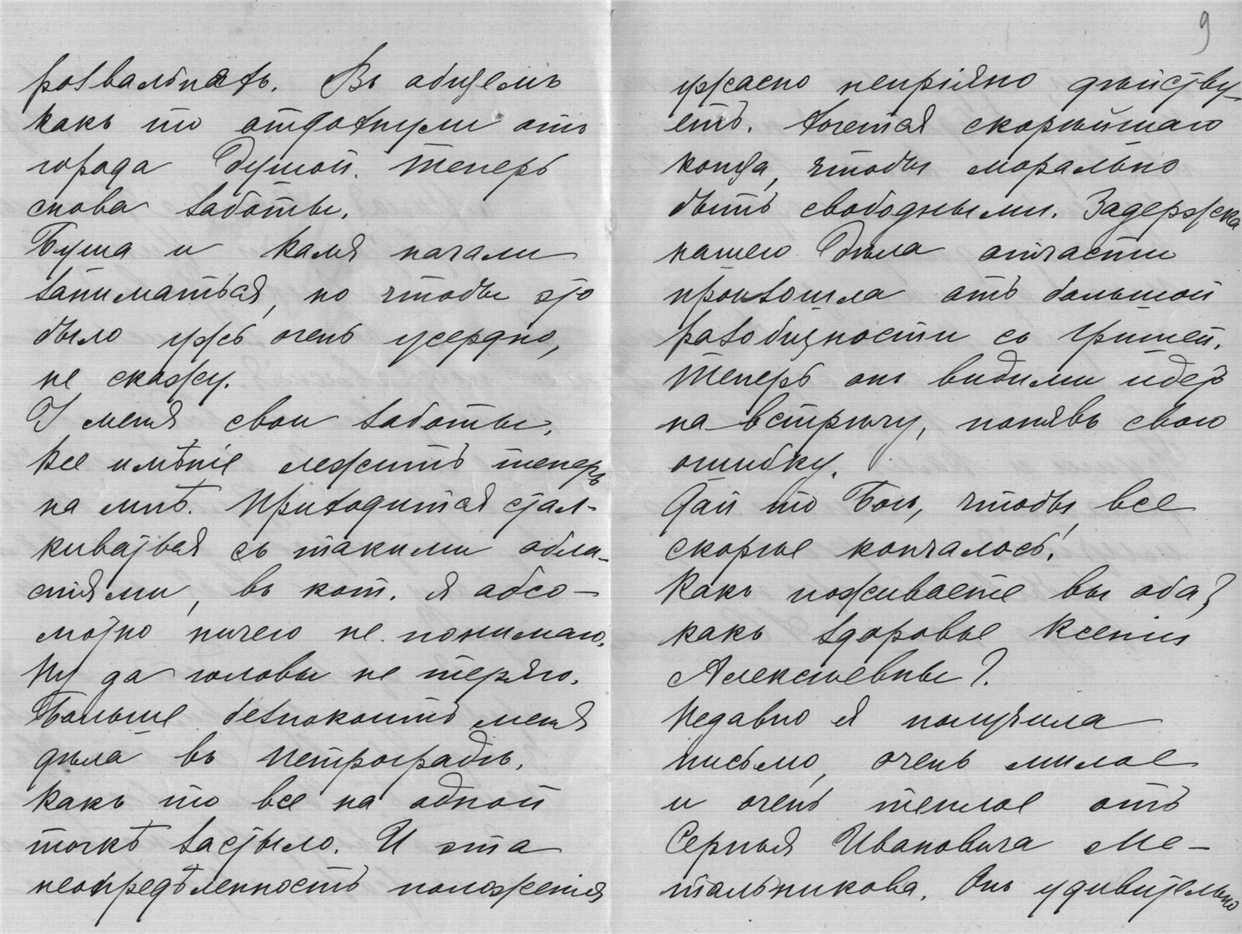 9
развалѣнать. Въ общемъ
какъ то отдохнули отъ
города душой. Теперь
снова заботы.
Буша и Каля начали
заниматься, но чтобы это
было ужъ очень усердно,
не скажу.
У меня свои заботы.
Все имѣніе лежитъ теперь
на мнѣ. Приходится стал-
киваться съ такими обла-
стями, въ кот. я абсо-
лютно ничего не понимаю.
Ну да головы не теряю.
Больше безпокоитъ меня
дѣла въ Петроградѣ.
Какъ то все на одной
точкѣ застыло. И эта
неопредѣленность положенія
ужасно непріятно дѣйству-
етъ. Хочется скорѣйшаго
конца, чтобы морально
быть свободными. Задержка
нашего дѣла отчасти
произошла отъ большой
разобщности съ Гришей.
Теперь онъ видимо идетъ
на встрѣчу, понявъ свою
ошибку.
Дай то Богъ, чтобы все
скорѣе кончалось!
Какъ поживаете вы оба?
Какъ здоровье Ксеніи
Алексѣевны?
Недавно я получила
письмо, очень милое
и очень теплое отъ
Сергѣя Ивановича Ме-
тальникова. Онъ удивительно